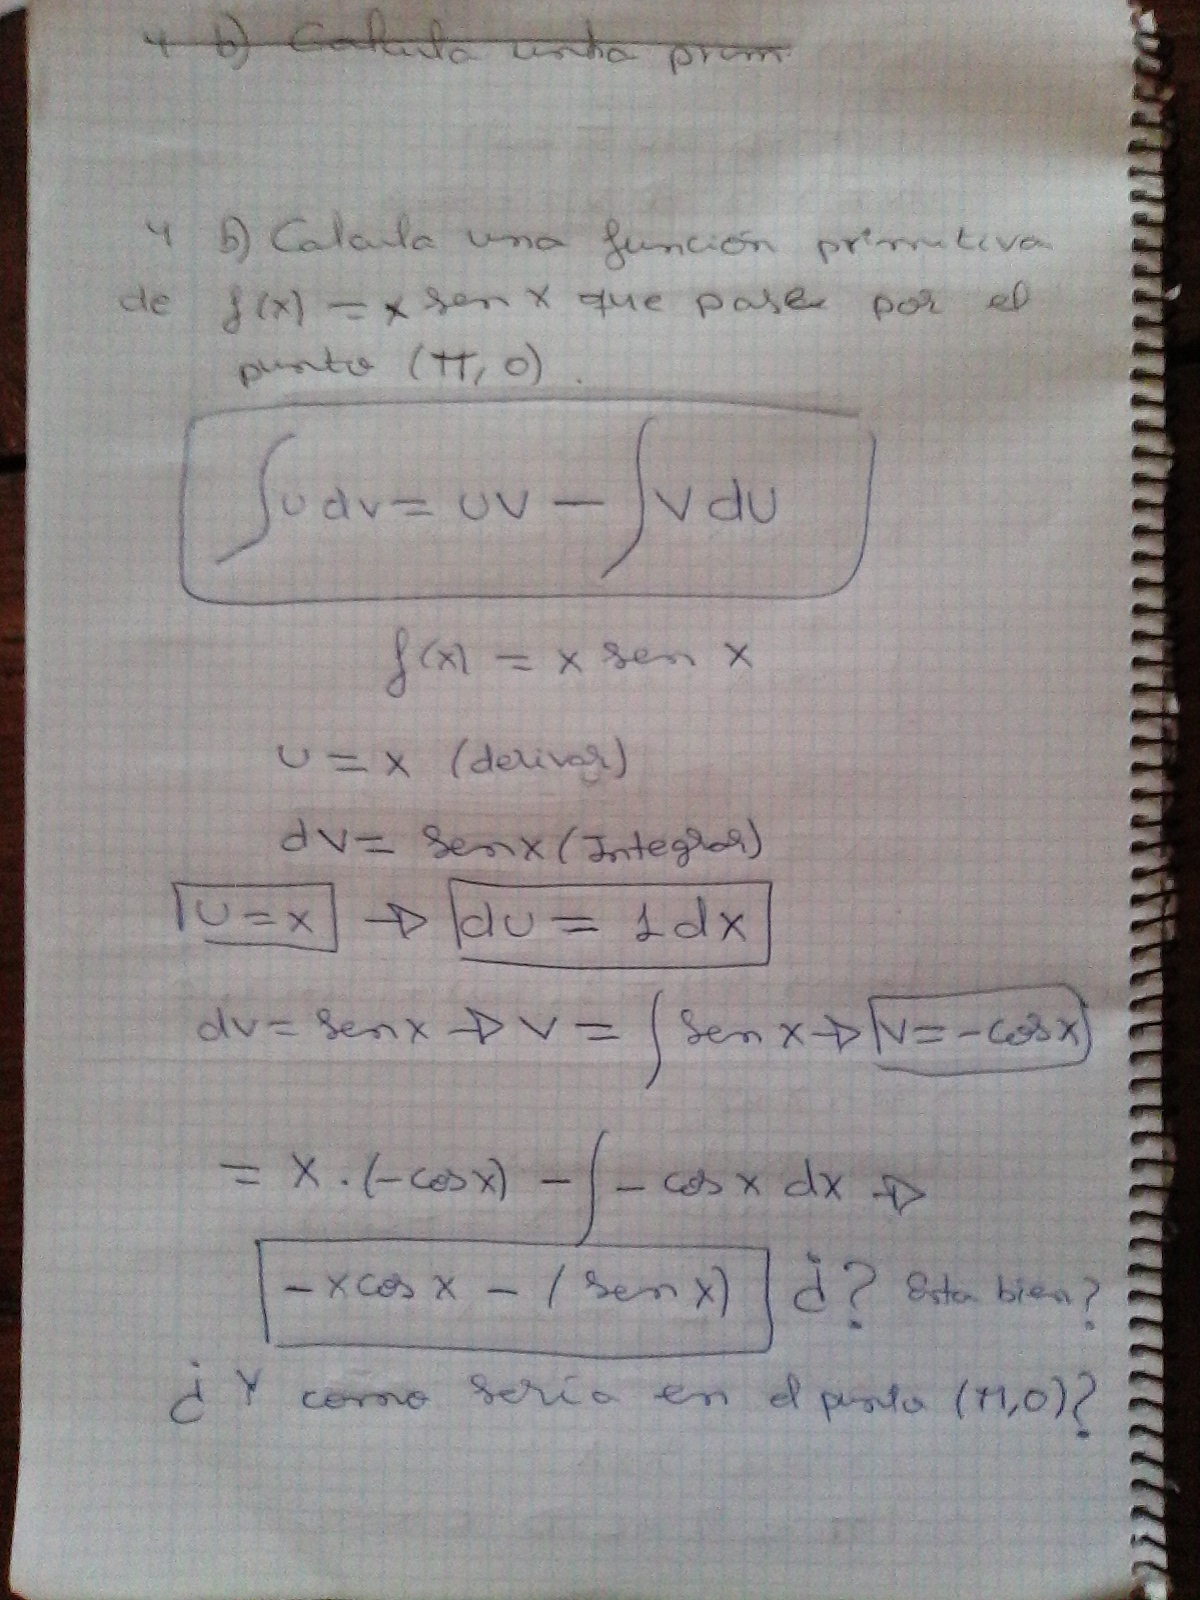 4 b) Calcula unha prim
4 b) Calcula una función primitiva
de f(x) = x sen x que pase por el
punto (π, 0).
∫u dv = uv - ∫v du
f(x) = x sen x
u = x (derivar)
dv = sen x (Integrar)
u = x → du = 1 dx
dv = sen x → v = ∫ sen x → v = -cos x
= x · (-cos x) - ∫ - cos x dx →
- x cos x - (sen x) ¿? Esta bien?
¿Y como sería en el punto (π, 0)?